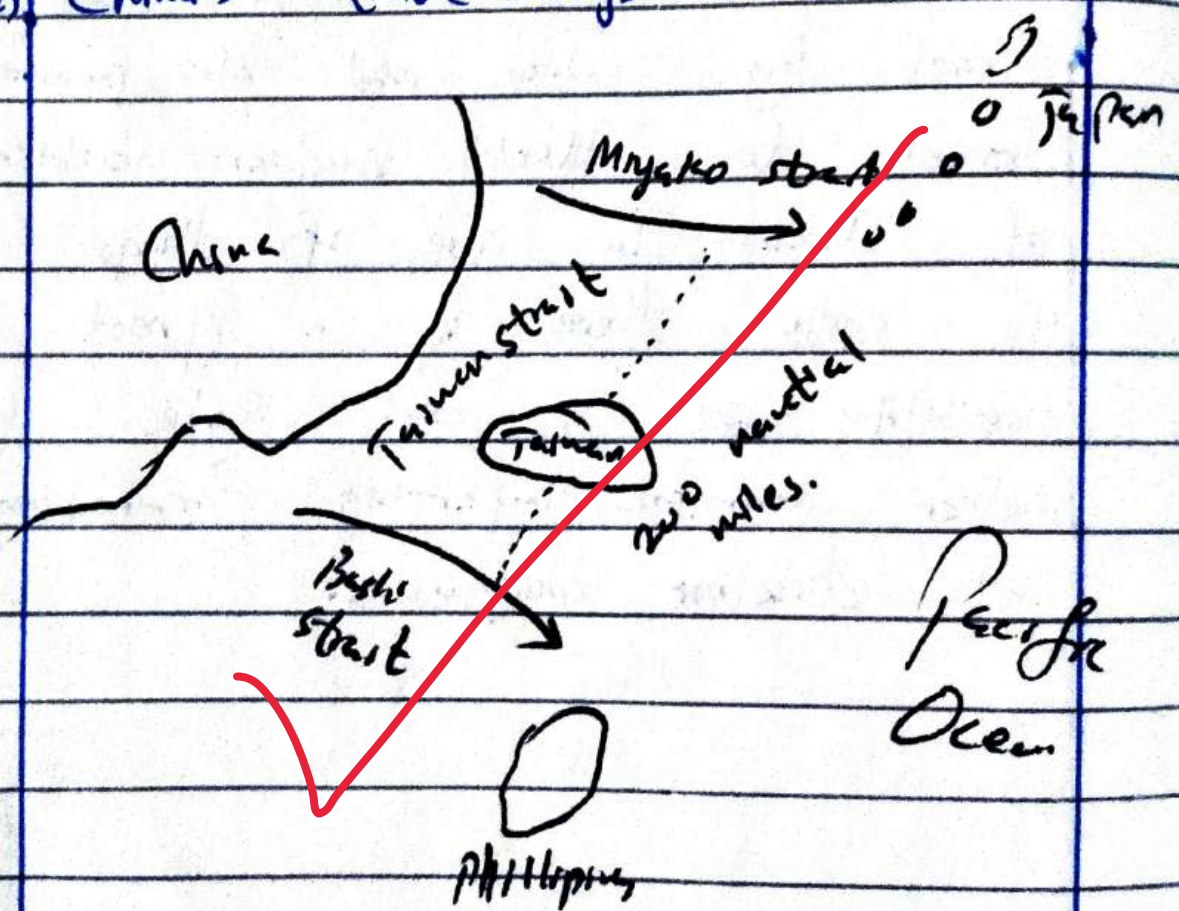 China's
Japan
Miyako strait
China
Taiwan strait
Taiwan
200 nautial
miles.
Bashi
strait
Pacific
Ocean
Phillipines